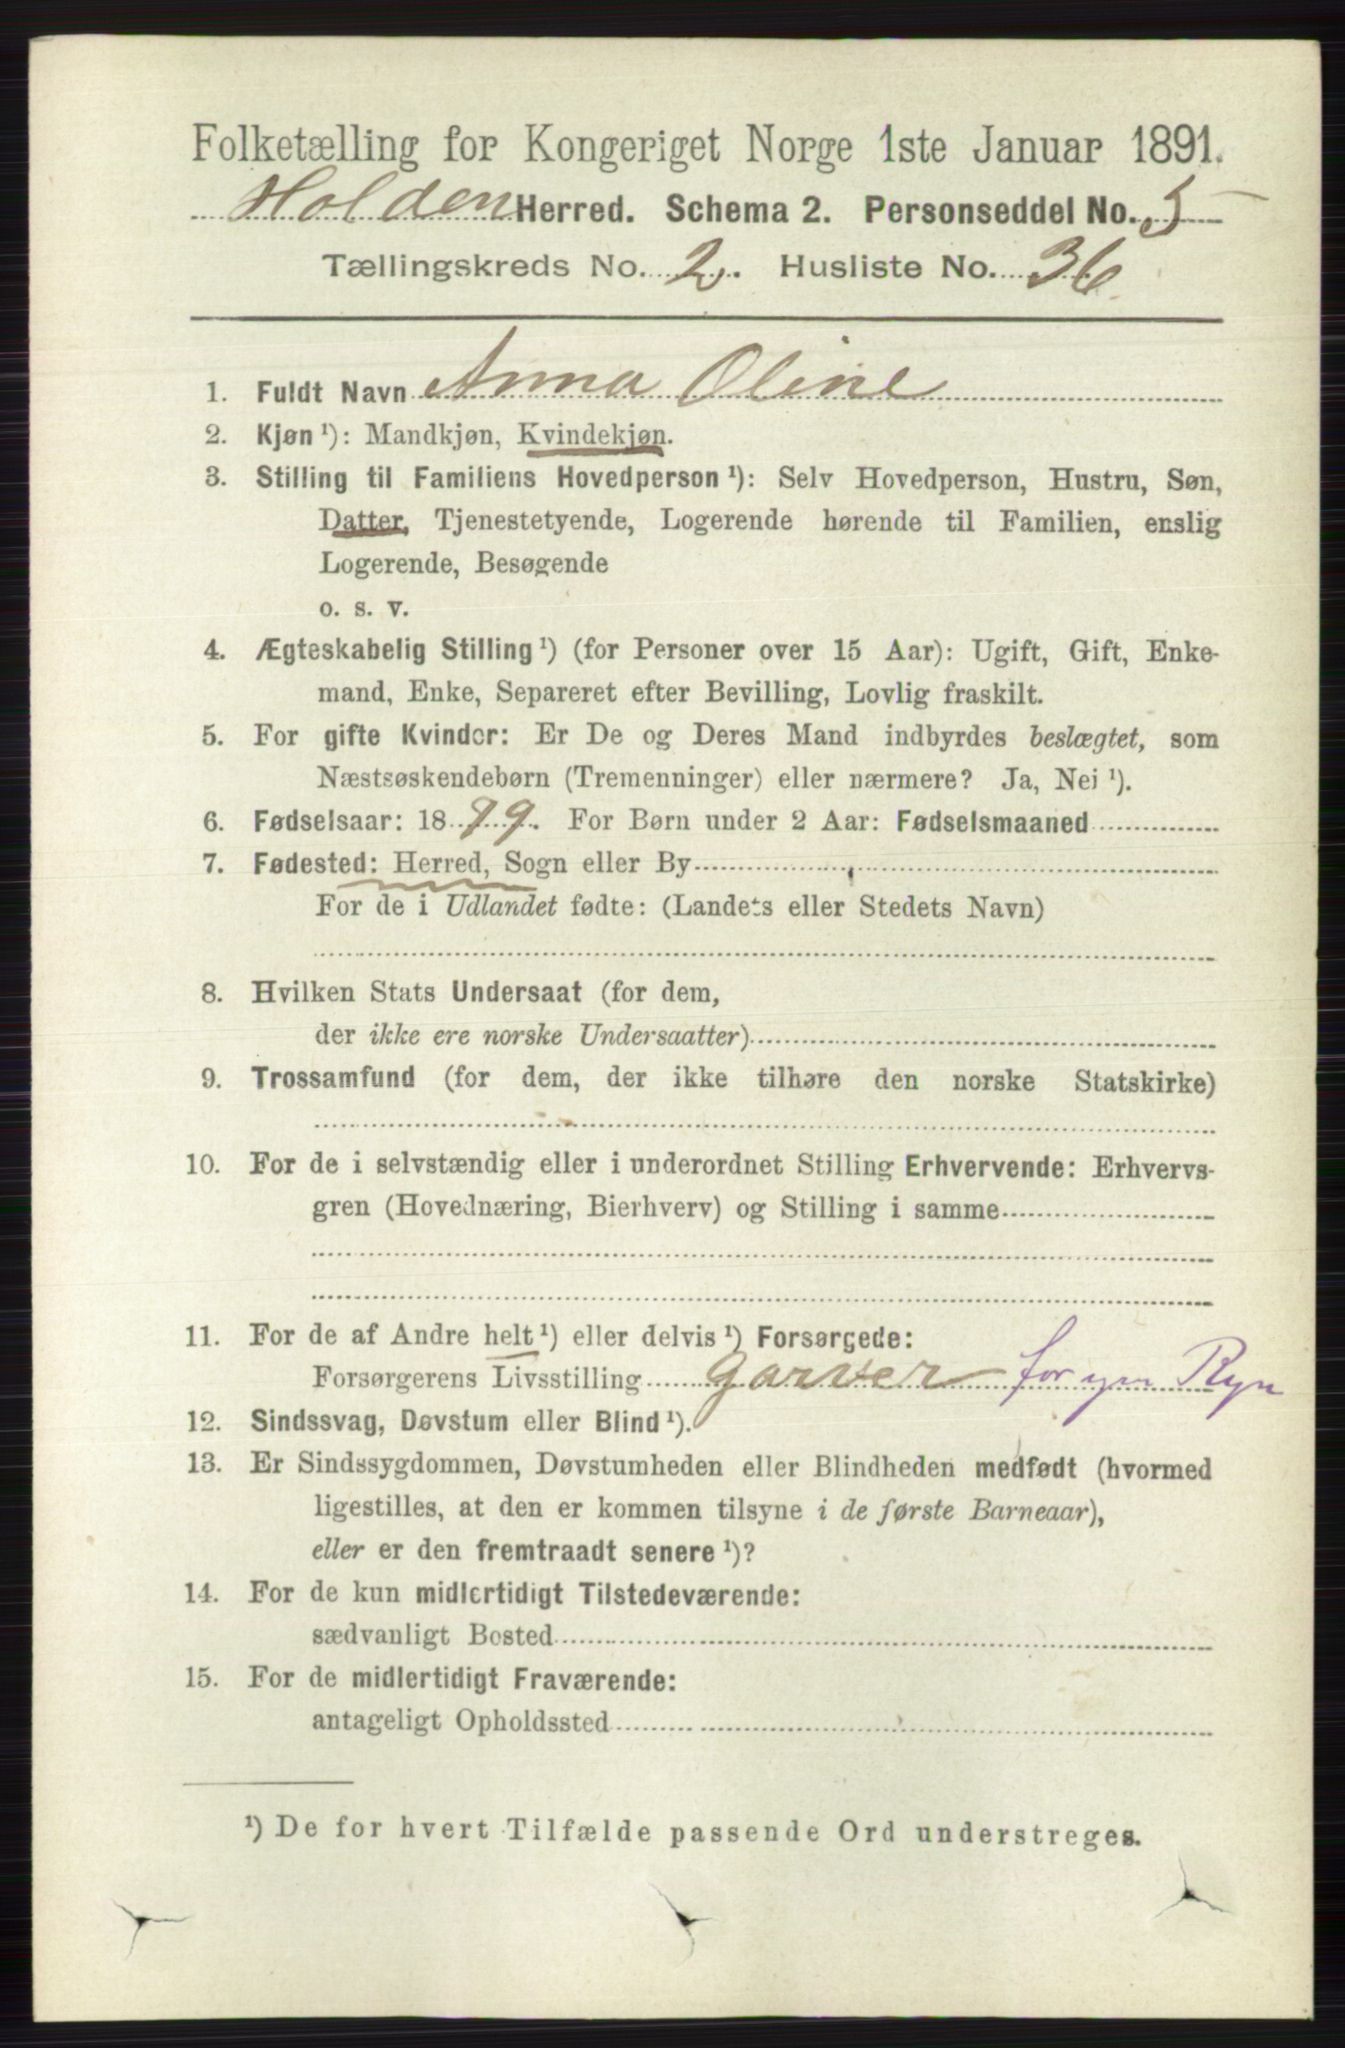 Folketælling for Kongeriget Norge 1ste Januar 1891.
Holden Herred. Schema 2. Personseddel No. 5
Tællingskreds No. 2. Husliste No. 36
1. Fuldt Navn Anna Oline
2. Kjøn ¹): Mandkjøn, Kvindekjøn.
3. Stilling til Familiens Hovedperson ¹): Selv Hovedperson, Hustru, Søn,
Datter, Tjenestetyende, Logerende hørende til Familien, enslig
Logerende, Besøgende
o. s. v.
4. Ægteskabelig Stilling ¹) (for Personer over 15 Aar): Ugift, Gift, Enke-
mand, Enke, Separeret efter Bevilling, Lovlig fraskilt.
5. For gifte Kvinder: Er De og Deres Mand indbyrdes beslægtet, som
Næstsøskendebørn (Tremenninger) eller nærmere? Ja, Nei ¹).
6. Fødselsaar: 18 79. For Børn under 2 Aar: Fødselsmaaned
7. Fødested: Herred, Sogn eller By
For de i Udlandet fødte: (Landets eller Stedets Navn)
8. Hvilken Stats Undersaat (for dem,
der ikke ere norske Undersaatter)
9. Trossamfund (for dem, der ikke tilhøre den norske Statskirke)
10. For de i selvstændig eller i underordnet Stilling Erhvervende: Erhvervs-
gren (Hovednæring, Bierhverv) og Stilling i samme
11. For de af Andre helt ¹) eller delvis ¹) Forsørgede:
Forsørgerens Livsstilling Garver for
12. Sindssvag, Døvstum eller Blind ¹).
13. Er Sindssygdommen, Døvstumheden eller Blindheden medfødt (hvormed
ligestilles, at den er kommen tilsyne i de første Barneaar),
eller er den fremtraadt senere ¹)?
14. For de kun midlertidigt Tilstedeværende:
sædvanligt Bosted
15. For de midlertidigt Fraværende:
antageligt Opholdssted
¹) De for hvert Tilfælde passende Ord understreges.